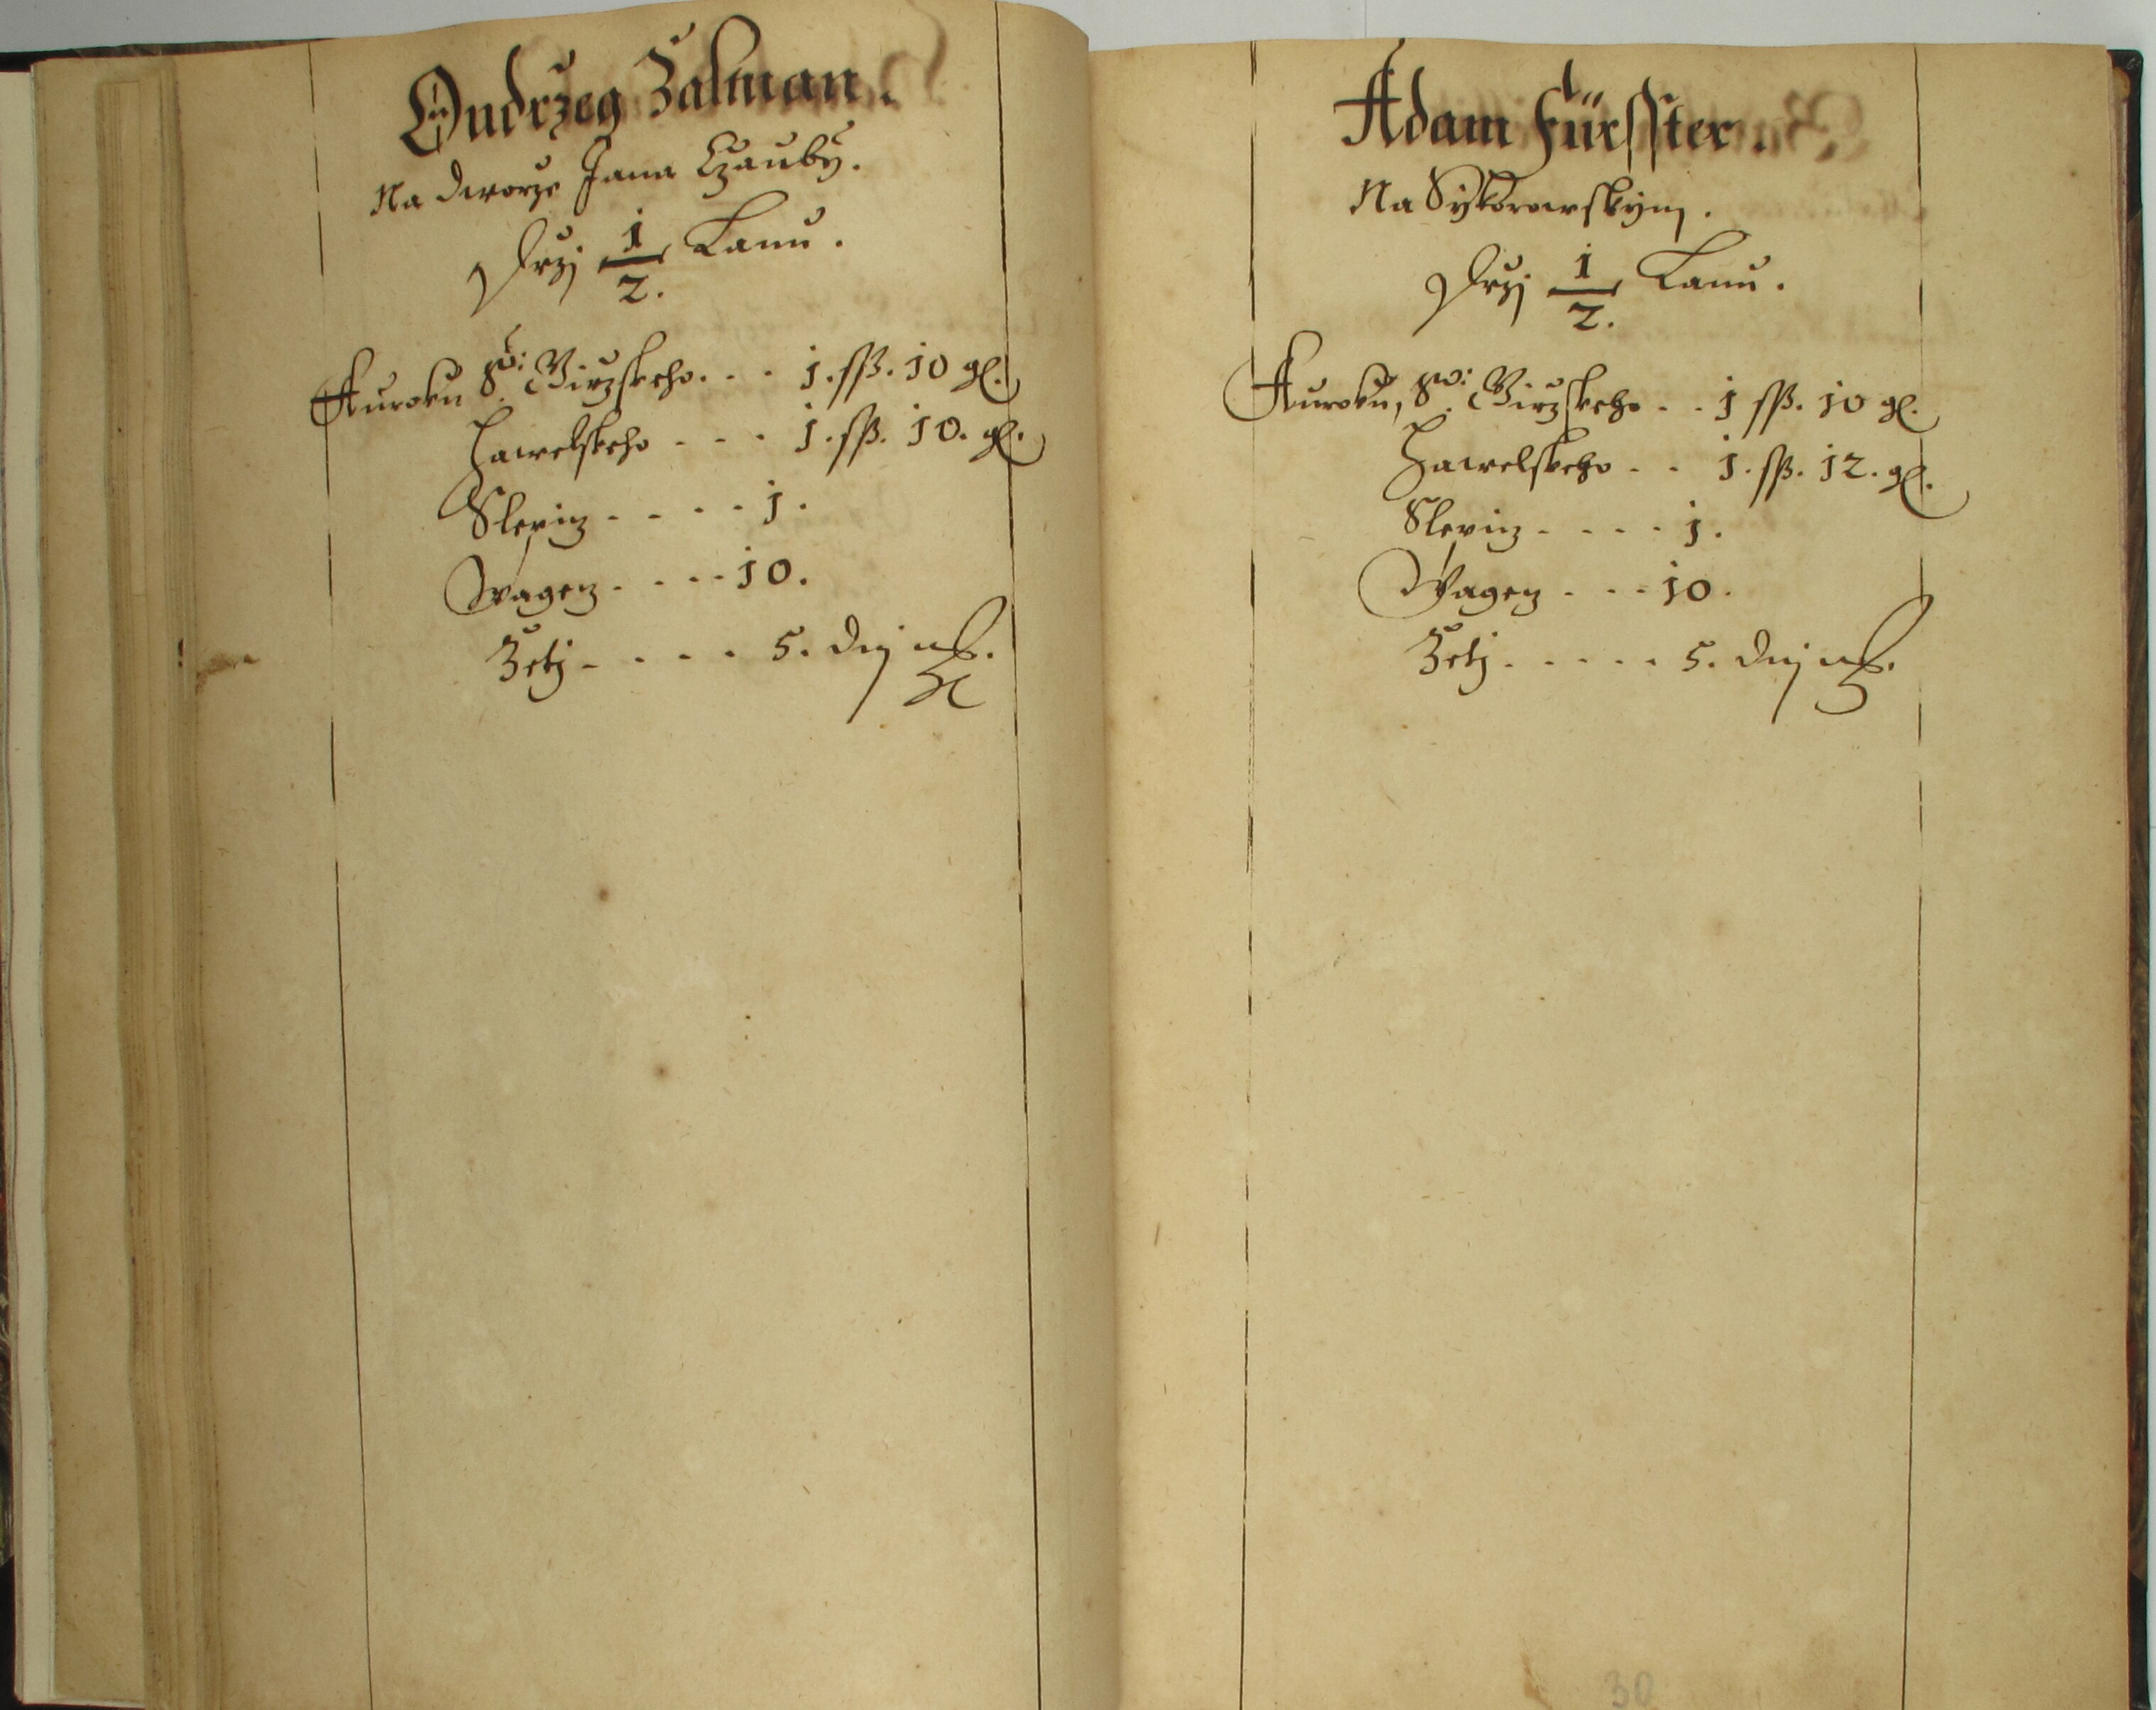 Ondrzeg Zalman.
Na dworze Jana Czauby.
Drzj 1/2. Lanu.
Auroku Sō: Girzskeho. . . 1. sß. 10 gl.
Hawelskeho - - - 1. sß. 10. gl.
Slepicz - - - - 1.
Wagecz - - - - 10.
Zetj - - - - 5. dnj
Adam Fürsster.
Na Sykorowskym.
Drzj 1/2. Lanu.
Auroku, So: Girzskeho - - 1 sß. 10 gl.
Hawelskeho - - 1. sß. 12. gl.
Slepicz - - - - 1.
Wagecz - - - 10.
Zetj - - - - - 5. dnj
30